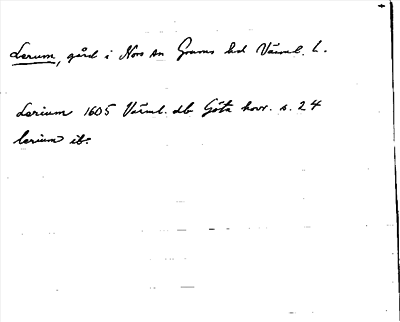 Lerum, gård i Nors sn Grums hd Värml. L.
Lerium 1605 Värml. db Göta hovr. s. 24
lerium ib.